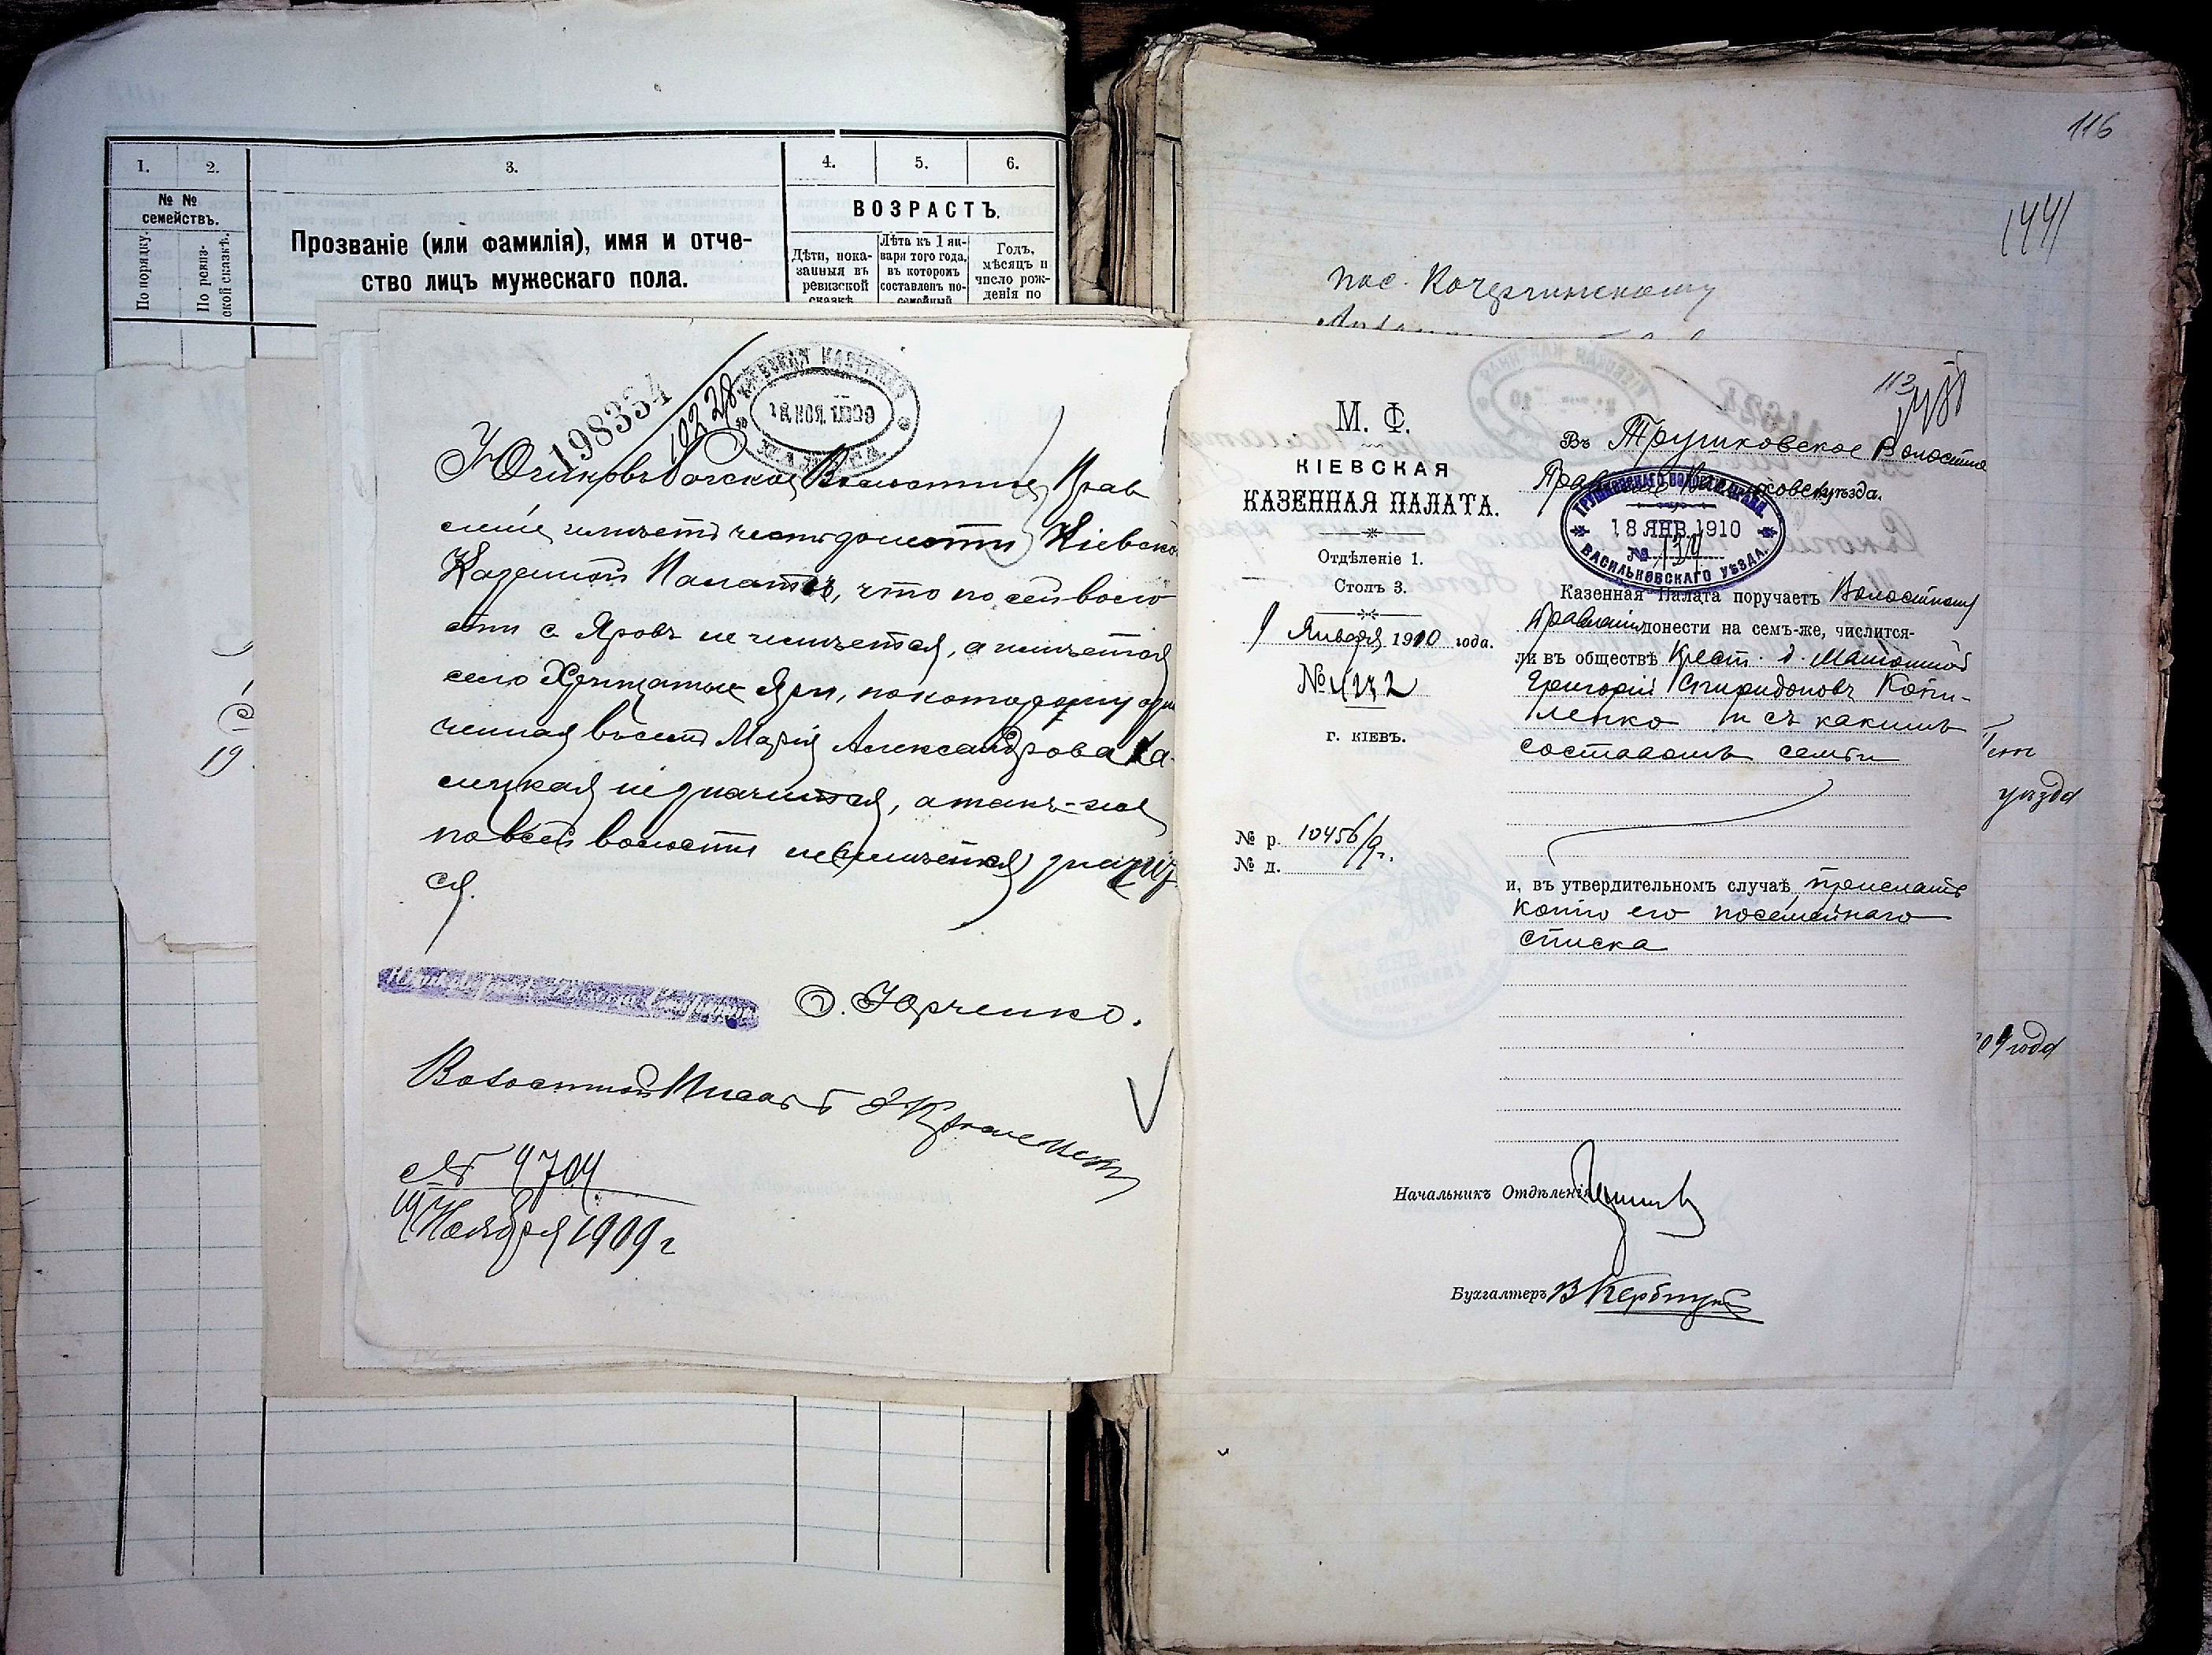 1.
2.
3.
4.
5.
6.
№ №
семействъ.
По порядку.
По ревиз-
ской сказкѣ.
Прозваніе (или фамилія), имя и отче-
ство лицъ мужескаго пола.
ВОЗРАСТЪ.
Дѣти, пока-
занныя въ
ревизской
сказкѣ
Лѣта къ 1 ян-
варя того года,
въ которомъ
составленъ по-
семейный
Годъ,
мѣсяцъ и
число рож-
денія по
19
198334
18 НОЯ. 1909
Волостное Прав
леніе имѣетъ честь донести Кіевской
Казенной Палатѣ, что по сей воло
сти с. Яровъ не имѣется, а имѣется
село Хрещатые Яры, по которому
Марія Александрова
не значится, а такъ-же
по всей волости значит
ся.
Ѳ. Юрченко.
Волостной Писарь
№ 4704
Ноября 1909 г
116
1441
пос. Кочергинскому
М. Ф.
КІЕВСКАЯ
КАЗЕННАЯ ПАЛАТА.
Отдѣленіе 1.
Столъ 3.
9 Января 1910 года.
№ 4232
г. КІЕВЪ.
№ р. 10456/9г.
№ д.
113
Въ Трушковское Волостное
Правленіе Васильковск. уѣзда.
ТРУШКОВСКАГО ВОЛОСТН. ПРАВЛ.
18 ЯНВ. 1910
№ 134
ВАСИЛЬКОВСКАГО УѢЗДА.
Казенная Палата поручаетъ Волостному
Правленію донести на семъ-же, числится-
ли въ обществѣ Крест. д. Матюшной
Григорій Спиридоновъ Копи-
ленко и съ какимъ
составомъ семьи
и, въ утвердительномъ случаѣ, прислать
копію его посемейнаго
списка
уѣзда
года
Начальникъ Отдѣленія
Бухгалтеръ В Кербту